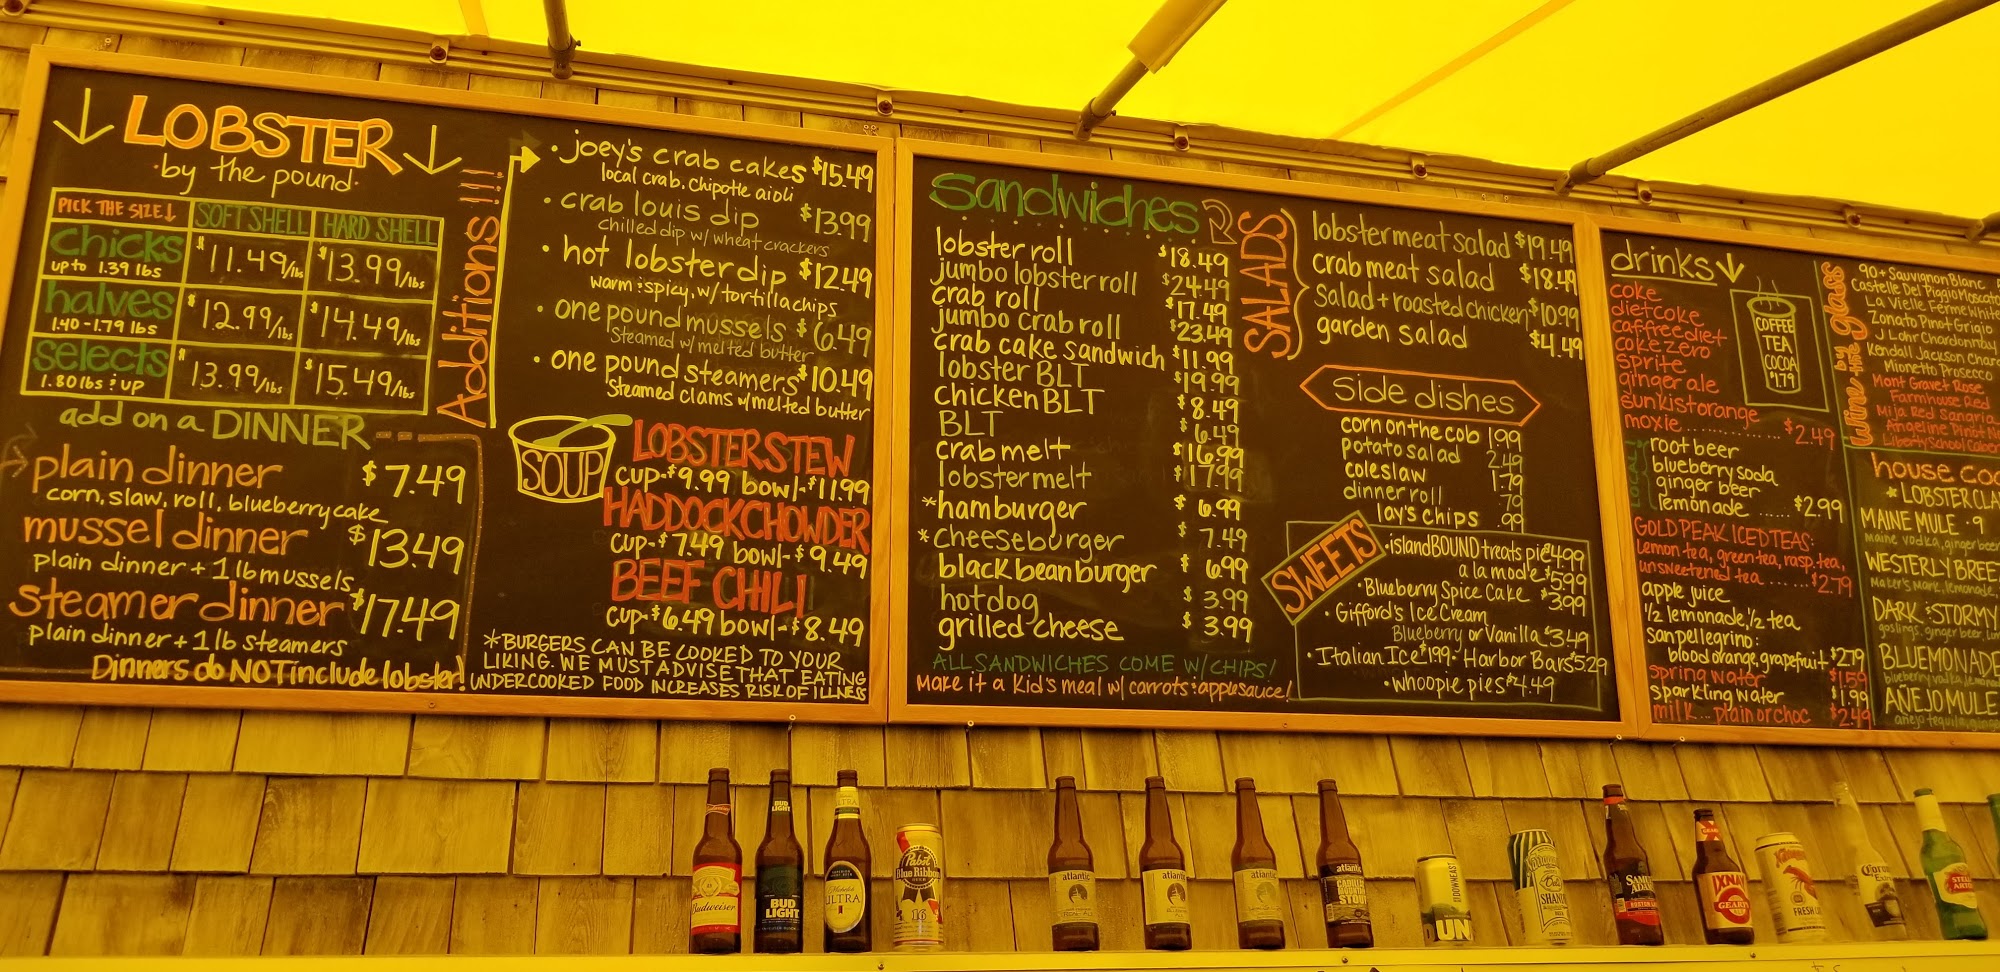 LOBSTER
by the pound
PICK THE SIZE↓ SOFT SHELL HARD SHELL
chicks
up to 1.39 lbs
$11.49/lbs $13.99/lbs
halves
1.40 - 1.79 lbs
$12.99/lbs $14.49/lbs
selects
1.80 lbs & up
$13.99/lbs $15.49/lbs
add on a DINNER
plain dinner $7.49
corn, slaw, roll, blueberry cake
mussel dinner $13.49
plain dinner + 1 lb mussels
steamer dinner $17.49
plain dinner + 1 lb steamers
Dinners do NOT include lobster!
Additions!!!
• joey's crab cakes $15.49
local crab, chipotle aioli
• crab louis dip $13.99
chilled dip w/ wheat crackers
• hot lobster dip $12.49
warm & spicy, w/ tortilla chips
• one pound mussels $6.49
Steamed w/ melted butter
• one pound steamers $10.49
Steamed clams w/ melted butter
SOUP
LOBSTER STEW
cup-$9.99 bowl-$11.99
HADDOCK CHOWDER
cup-$7.49 bowl-$9.49
BEEF CHILI
cup-$6.49 bowl-$8.49
*BURGERS CAN BE COOKED TO YOUR
LIKING. WE MUST ADVISE THAT EATING
UNDERCOOKED FOOD INCREASES RISK OF ILLNESS
Sandwiches
lobster roll $18.49
jumbo lobster roll $24.49
crab roll $17.49
jumbo crab roll $23.49
crab cake sandwich $11.99
lobster BLT $19.99
chicken BLT $8.49
BLT $6.49
crab melt $16.99
lobster melt $17.99
*hamburger $6.99
*cheeseburger $7.49
black bean burger $6.99
hot dog $3.99
grilled cheese $3.99
ALL SANDWICHES COME W/ CHIPS!
Make it a Kid's meal w/ carrots & applesauce!
SALADS
lobstermeat salad $19.49
crab meat salad $18.49
salad + roasted chicken $10.99
garden salad $4.49
side dishes
corn on the cob 1.99
potato salad 2.49
coleslaw 1.79
dinner roll .79
lay's chips .99
SWEETS
• islandBOUND treats pie $4.99
a la mode $5.99
• Blueberry Spice Cake $3.99
• Gifford's Ice Cream
Blueberry or Vanilla $3.49
• Italian Ice $1.99 • Harbor Bars $5.29
• whoopie pies $4.49
drinks
coke
diet coke
caffree diet
coke zero
sprite
ginger ale
sunkist orange
moxie .............. $2.49
COFFEE
TEA
COCOA
$1.79
LOCAL
root beer
blueberry soda
ginger beer
lemonade ...... $2.99
GOLD PEAK ICED TEAS:
lemon tea, green tea, rasp. tea,
unsweetened tea ....... $2.79
apple juice
1/2 lemonade, 1/2 tea
san pellegrino:
blood orange, grapefruit $2.79
spring water $1.59
sparkling water $1.99
milk... plain or choc $2.49
wine by the glass
90+ Sauvignon Blanc
Castelle Del Piagio Moscato
La Vielle Ferme White
Zonato Pinot Grigio
J Lohr Chardonnay
Kendall Jackson Char
Mionetto Prosecco
Mont Gravet Rose
Farmhouse Red
Mija Red Sangria
Angeline Pinot
Liberty School
house coc
*LOBSTER CLA
MAINE MULE · 9
Maine vodka, ginger beer
WESTERLY BREE
Maker's Mark, lemonade,
DARK & STORMY
goslings, ginger beer,
BLUEMONADE
blueberry vodka,
AÑEJO MULE
añejo tequila,
Budweiser
BUD LIGHT
BUD
LIGHT
ULTRA
ULTRA
Pabst
Blue Ribbon
16
atlantic
atlantic
atlantic
atlantic
CADILLAC
MOUNTAIN
STOUT
DOWNEAST
SHANDY
SAMUEL
ADAMS
GEARY
IXNAY
GEARY
FRESH
Corona
Extra
STELLA
ARTOIS